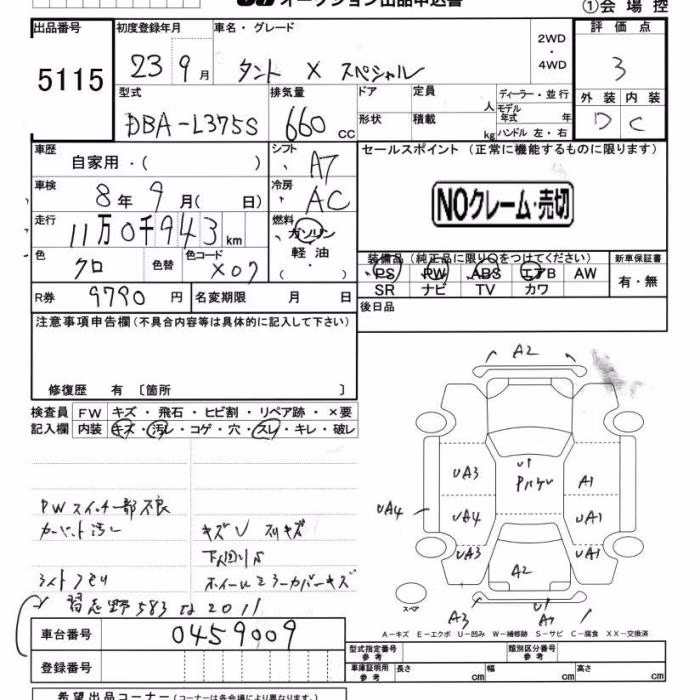 オークション出品申込書 ①会場控
出品番号 初度登録年月 車名・グレード 評価点
5115 23 9月 タント X スペシャル 2WD・4WD 3
型式 排気量 ドア 定員 人 ディーラー・並行 外装 内装
DBA-L375S 660 cc 形状 積載 kg モデル年式 年 ハンドル 左・右 D C
車歴 自家用・( ) シフト A7 セールスポイント (正常に機能するものに限ります)
車検 8年9月( 日) 冷房 AC
NOクレーム・売切
走行 11万0千943 km 燃料 ガソリン・軽油・( )
色 クロ 色替 色コード X07
装備品(純正品に限り○をつけてください) 新車保証書
PS PW ABS エアB AW 有・無
SR ナビ TV カワ
R券 9790円 名変期限 月 日
後日品
注意事項申告欄(不具合内容等は具体的に記入して下さい)
修復歴 有 [箇所 ]
検査員 FW キズ・飛石・ヒビ割・リペア跡・×要
記入欄 内装 キズ・汚レ・コゲ・穴・スレ・キレ・破レ
A2
UA3 U1 A1
UA4 UA4 UA1
UA3 UA1
A2
PWスイッチ一部不良
キズU
スペア
A3 U1
A-キズ E-エクボ U-凹み W-補修跡 S-サビ C-腐食 XX-交換済
習志野583な2011
車台番号 0459009
登録番号
型式指定番号 参考 類別区分番号 参考
車庫証明用 参考 長さ cm 幅 cm 高さ cm
希望出品コーナー(コーナーは各会場により異なります。)